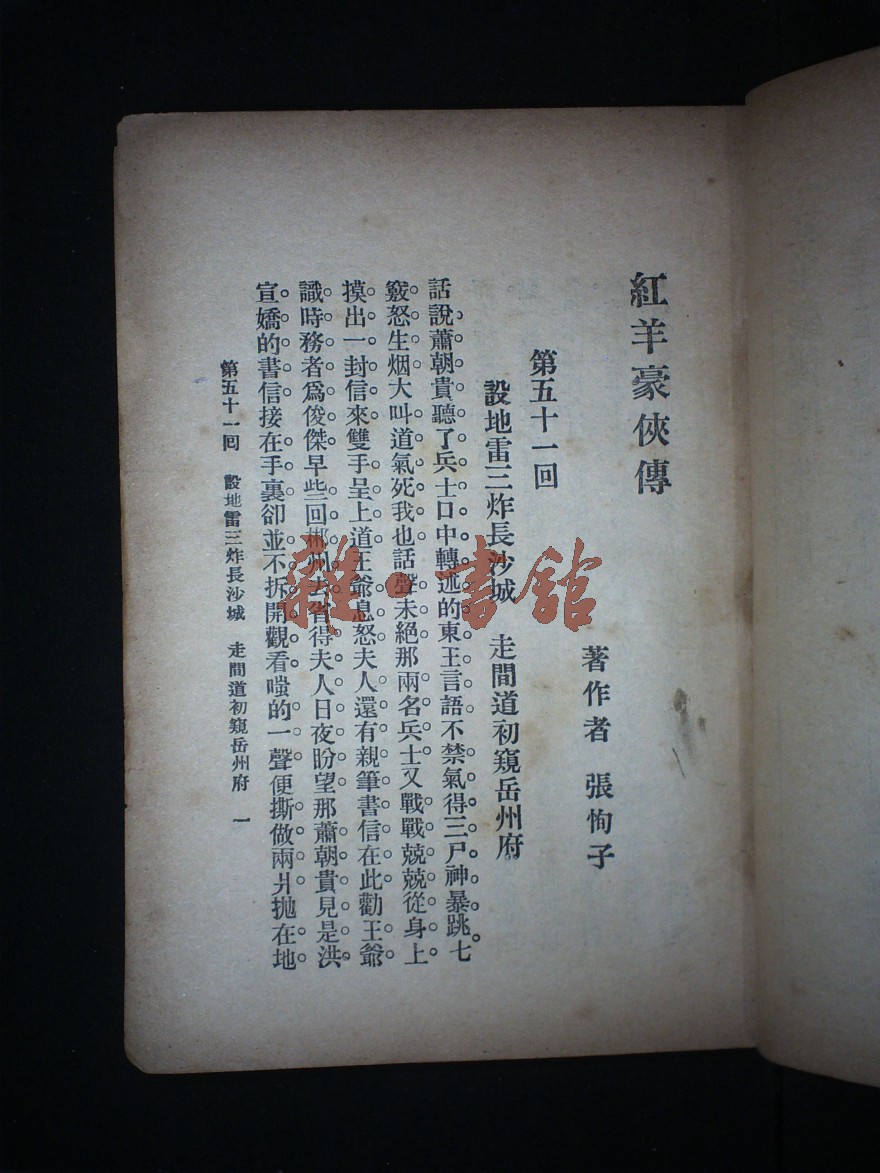 紅羊豪俠傳
著作者 張恂子
第五十一回
設地雷三炸長沙城 走間道初窺岳州府
話說蕭朝貴聽了兵士口中轉述的東王言語不禁氣得三尸神暴跳七
竅怒生烟大叫道氣死我也話聲未絕那兩名兵士又戰戰兢兢從身上
摸出一封信來雙手呈上道王爺息怒夫人還有親筆書信在此勸王爺
識時務者爲俊傑早些回郴州去省得夫人日夜盼望那蕭朝貴見是洪
宣嬌的書信接在手裏卻並不拆開觀看嗤的一聲便撕做兩爿拋在地
第五十一回 設地雷三炸長沙城 走間道初窺岳州府 一
雜·書館